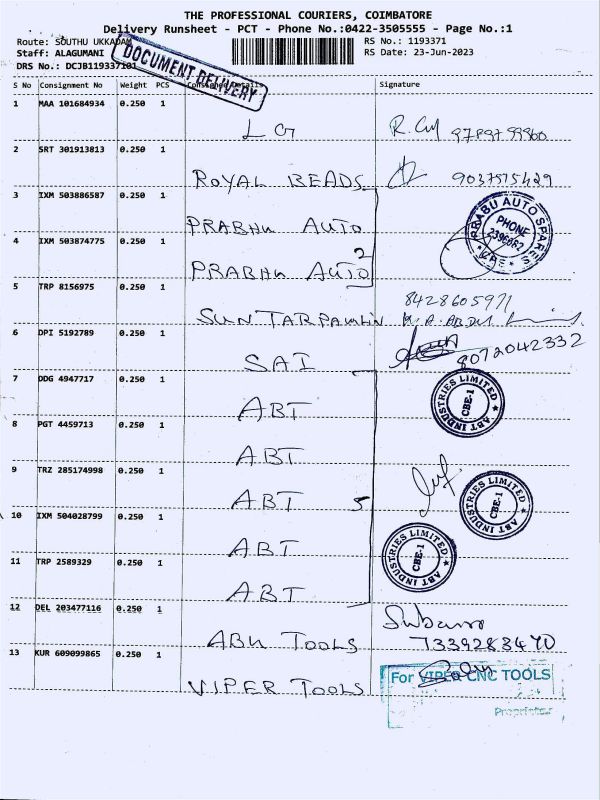 THE PROFESSIONAL COURIERS, COIMBATORE
Delivery Runsheet - PCT - Phone No.:0422-3505555 - Page No.:1
Route: SOUTHU UKKADAM RS No.: 1193371
Staff: ALAGUMANI RS Date: 23-Jun-2023
DRS No.: DCJB119337101
DOCUMENT DELIVERY
S No Consignment No Weight PCS Consignee Details Signature
1 MAA 101684934 0.250 1
LG R. 9789799960
2 SRT 301913813 0.250 1
ROYAL BEADS 9037575429
3 IXM 503886587 0.250 1
PRABHU AUTO
PRABU AUTO SPARES
PHONE
2396662
CBE
4 IXM 503874775 0.250 1
PRABHU AUTO 2
5 TRP 8156975 0.250 1
8428605971
SUN TARPAULIN
6 DPI 5192789 0.250 1
SAI 8072042332
7 DDG 4947717 0.250 1
ABT
ABT INDUSTRIES LIMITED
CBE-1
8 PGT 4459713 0.250 1
ABT
9 TRZ 285174998 0.250 1
ABT 5
ABT INDUSTRIES LIMITED
CBE-1
10 IXM 504028799 0.250 1
ABT
ABT INDUSTRIES LIMITED
CBE-1
11 TRP 2589329 0.250 1
ABT
12 DEL 203477116 0.250 1
ABU TOOLS 7339283470
13 KUR 609099865 0.250 1
For VIPER CNC TOOLS
VIPER TOOLS
Proprietor